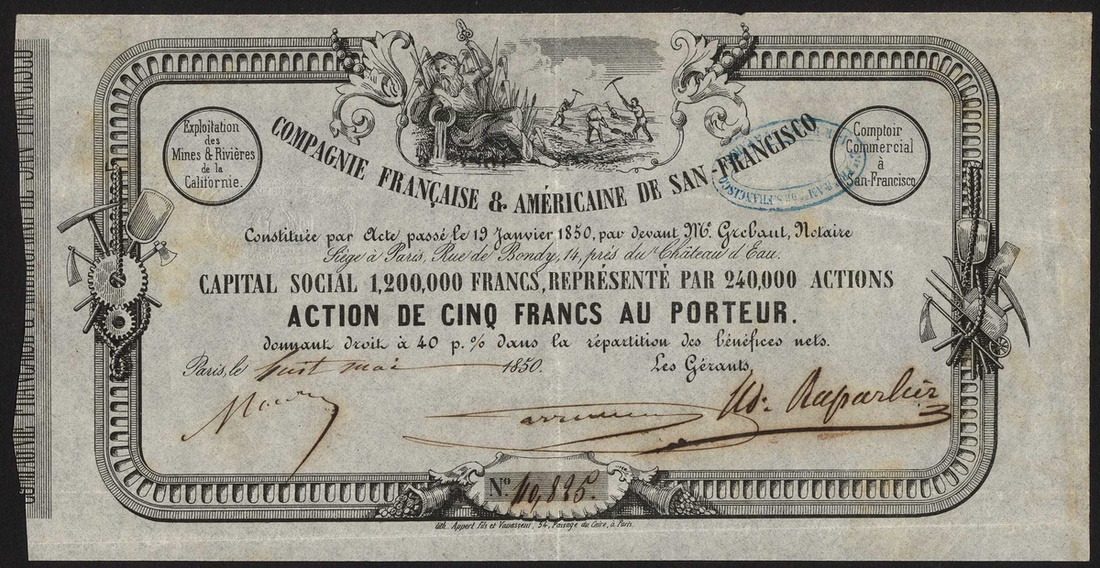 COMPAGNIE FRANÇAISE & AMÉRICAINE DE SAN-FRANCISCO
Exploitation
des
Mines & Rivières
de la
Californie.
Comptoir
Commercial
à
San-Francisco
Constituée par Acte passé le 19 Janvier 1850, par devant Mr. Grebaut, Notaire
Siège à Paris, Rue de Bondy, 14, près du Château d'Eau.
CAPITAL SOCIAL 1,200,000 FRANCS, REPRÉSENTÉ PAR 240,000 ACTIONS
ACTION DE CINQ FRANCS AU PORTEUR.
donnant droit à 40 p.% dans la répartition des bénéfices nets.
Paris, le huit mai 1850. Les Gérants,
No. 40,825.
Lith. Appert fils et Vavasseur, 54, Passage du Caire, à Paris.